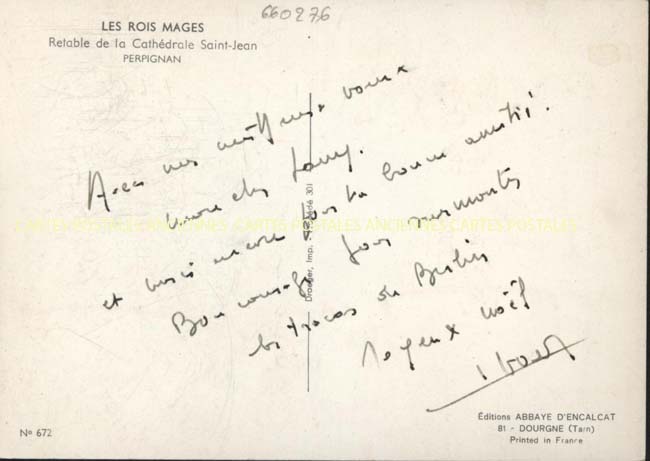 660276
LES ROIS MAGES
Retable de la Cathédrale Saint-Jean
PERPIGNAN
Avec nos meilleurs voeux
et merci encore pour ta bonne amitié !
Bon courage pour surmonter
les tracas de
Joyeux Noël
CARTES POSTALES ANCIENNES CARTES POSTALES ANCIENNES CARTES POSTALES
Draeger, Imp. - 301
No 672
Éditions ABBAYE D'ENCALCAT
81 - DOURGNE (Tarn)
Printed in France